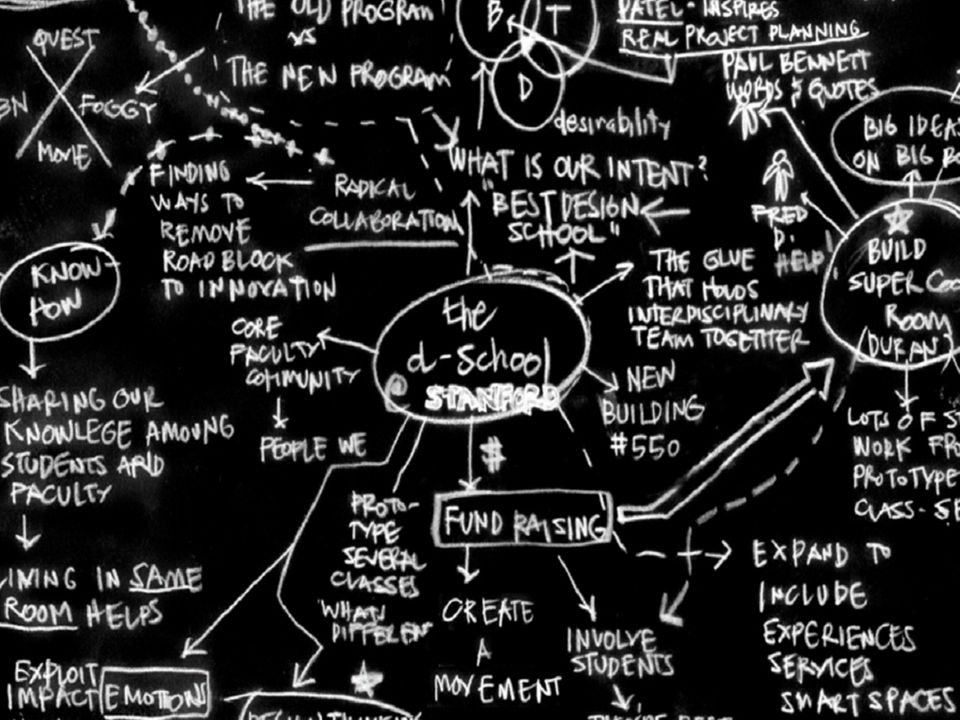 THE OLD PROGRAM
VS
THE NEW PROGRAM
QUEST
FOGGY
MOVIE
B
T
D
desirability
PATEL - INSPIRES
REAL PROJECT PLANNING
PAUL BENNETT
WORDS & QUOTES
BIG IDEAS
ON BIG
FINDING
WAYS TO
REMOVE
ROAD BLOCK
TO INNOVATION
RADICAL
COLLABORATION
WHAT IS OUR INTENT?
"BEST DESIGN
SCHOOL"
FRED
D.
HELP
BUILD
SUPER COO
ROOM
(DURAN
KNOW-
HOW
THE GLUE
THAT HOLDS
INTERDISCIPLINARY
TEAM TOGETTER
CORE
FACULTY
COMMUNITY
PEOPLE WE
the
d-school
@ STANFORD
NEW
BUILDING
#550
SHARING OUR
KNOWLEGE AMOUNG
STUDENTS AND
FACULTY
LIVING IN SAME
ROOM HELPS
EXPLOIT
IMPACT EMOTIONS
$
FUND RAISING
PROTO-
TYPE
SEVERAL
CLASSES
WHATS
DIFFERENT
CREATE
A
MOVEMENT
INVOLVE
STUDENTS
LOTS OF
WORK FRO
PROTOTYPE
CLASS-SE
EXPAND TO
INCLUDE
EXPERIENCES
SERVICES
SMART SPACES